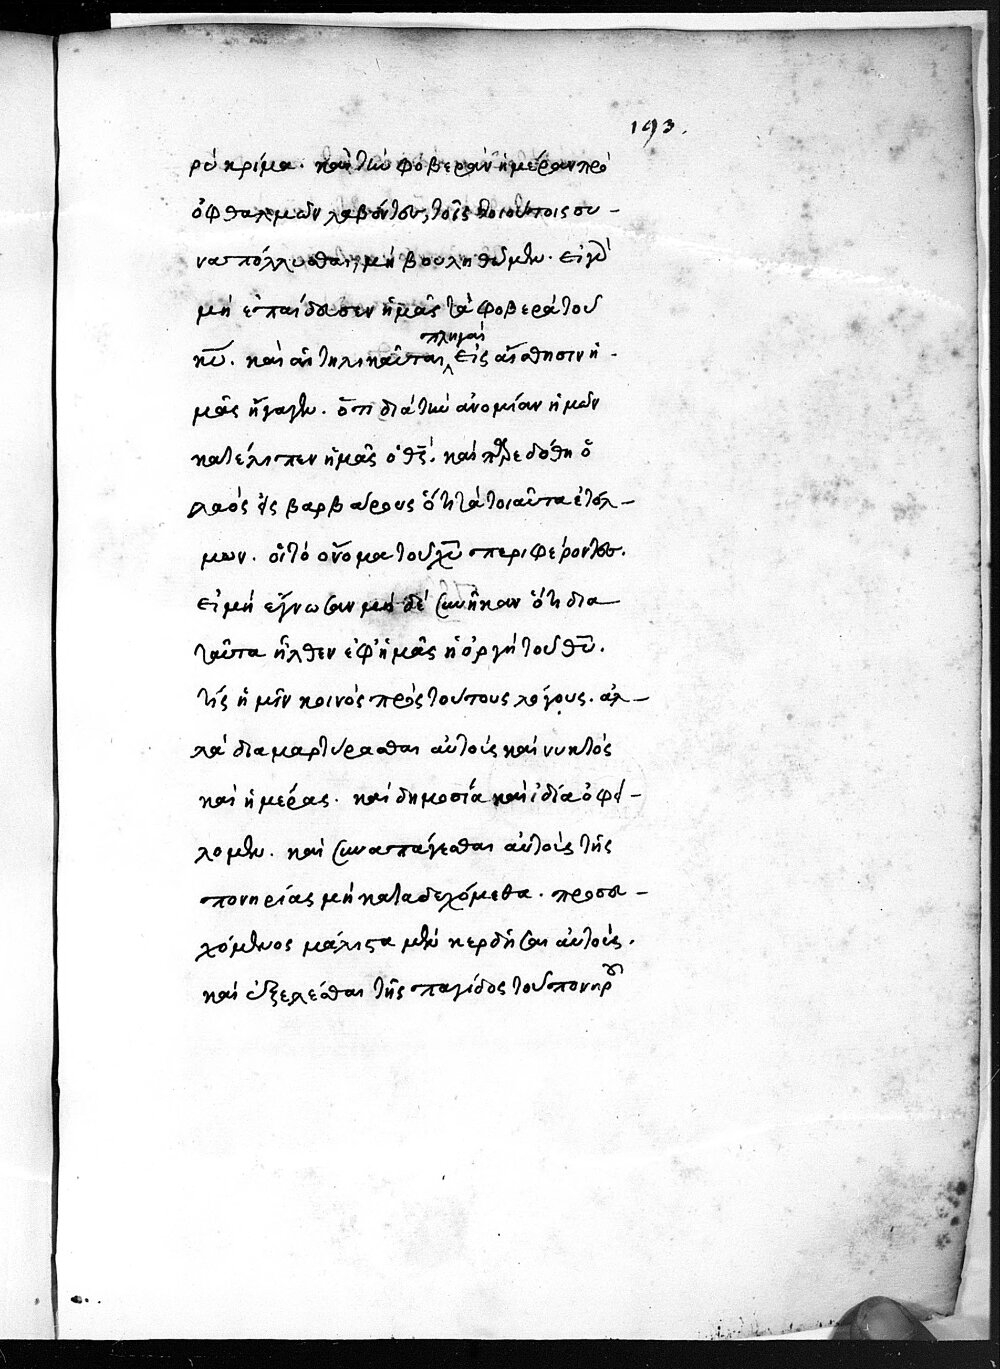 193.
ρὺ κρίμα. καὶ τὴν φοβερὰν ἡμέραν πρὸ
ὀφθαλμῶν λαβόντες, τοῖς τοιούτοις συ-
ναπόλλυσθαι, μὴ βουληθῶμεν. εἰ γὰρ
μὴ ἐπαίδευσεν ἡμᾶς τὰ φοβερὰ τοῦ
κῡ. καὶ αἱ τηλικαῦται πληγαὶ εἰς αἴσθησιν ἡ-
μᾶς ἤγαγεν. ὅτι διὰ τὴν ἀνομίαν ἡμῶν
κατέλιπεν ἡμᾶς ὁ θς̄. καὶ παρεδόθη ὁ
λαὸς εἰς βαρβάρους ὅτι τὰ τοιαῦτα ἐτόλ-
μων. οἱ τὸ ὄνομα τοῦ χῡ περιφέροντες.
εἰ μὴ ἔγνωσαν μὴ δὲ συνῆκαν ὅτι δια
ταῦτα ἦλθεν ἐφ' ἡμᾶς ἡ ὀργὴ τοῦ θῡ.
τίς ἡμῖν κοινὸς πρὸς τούτους λόγους. ἀλ-
λὰ διαμαρτύρασθαι αὐτοῖς καὶ νυκτὸς
καὶ ἡμέρας. καὶ δημοσίᾳ καὶ ἰδίᾳ ὀφεί-
λομεν. καὶ συναπάγεσθαι αὐτοῖς τῆς
πονηρίας μὴ καταδεχόμεθα. προσευ-
χόμενος μάλιστα μὲν κερδῆσαι αὐτοὺς.
καὶ ἐξελέσθαι τῆς παγίδος τοῦ πονηροῦ